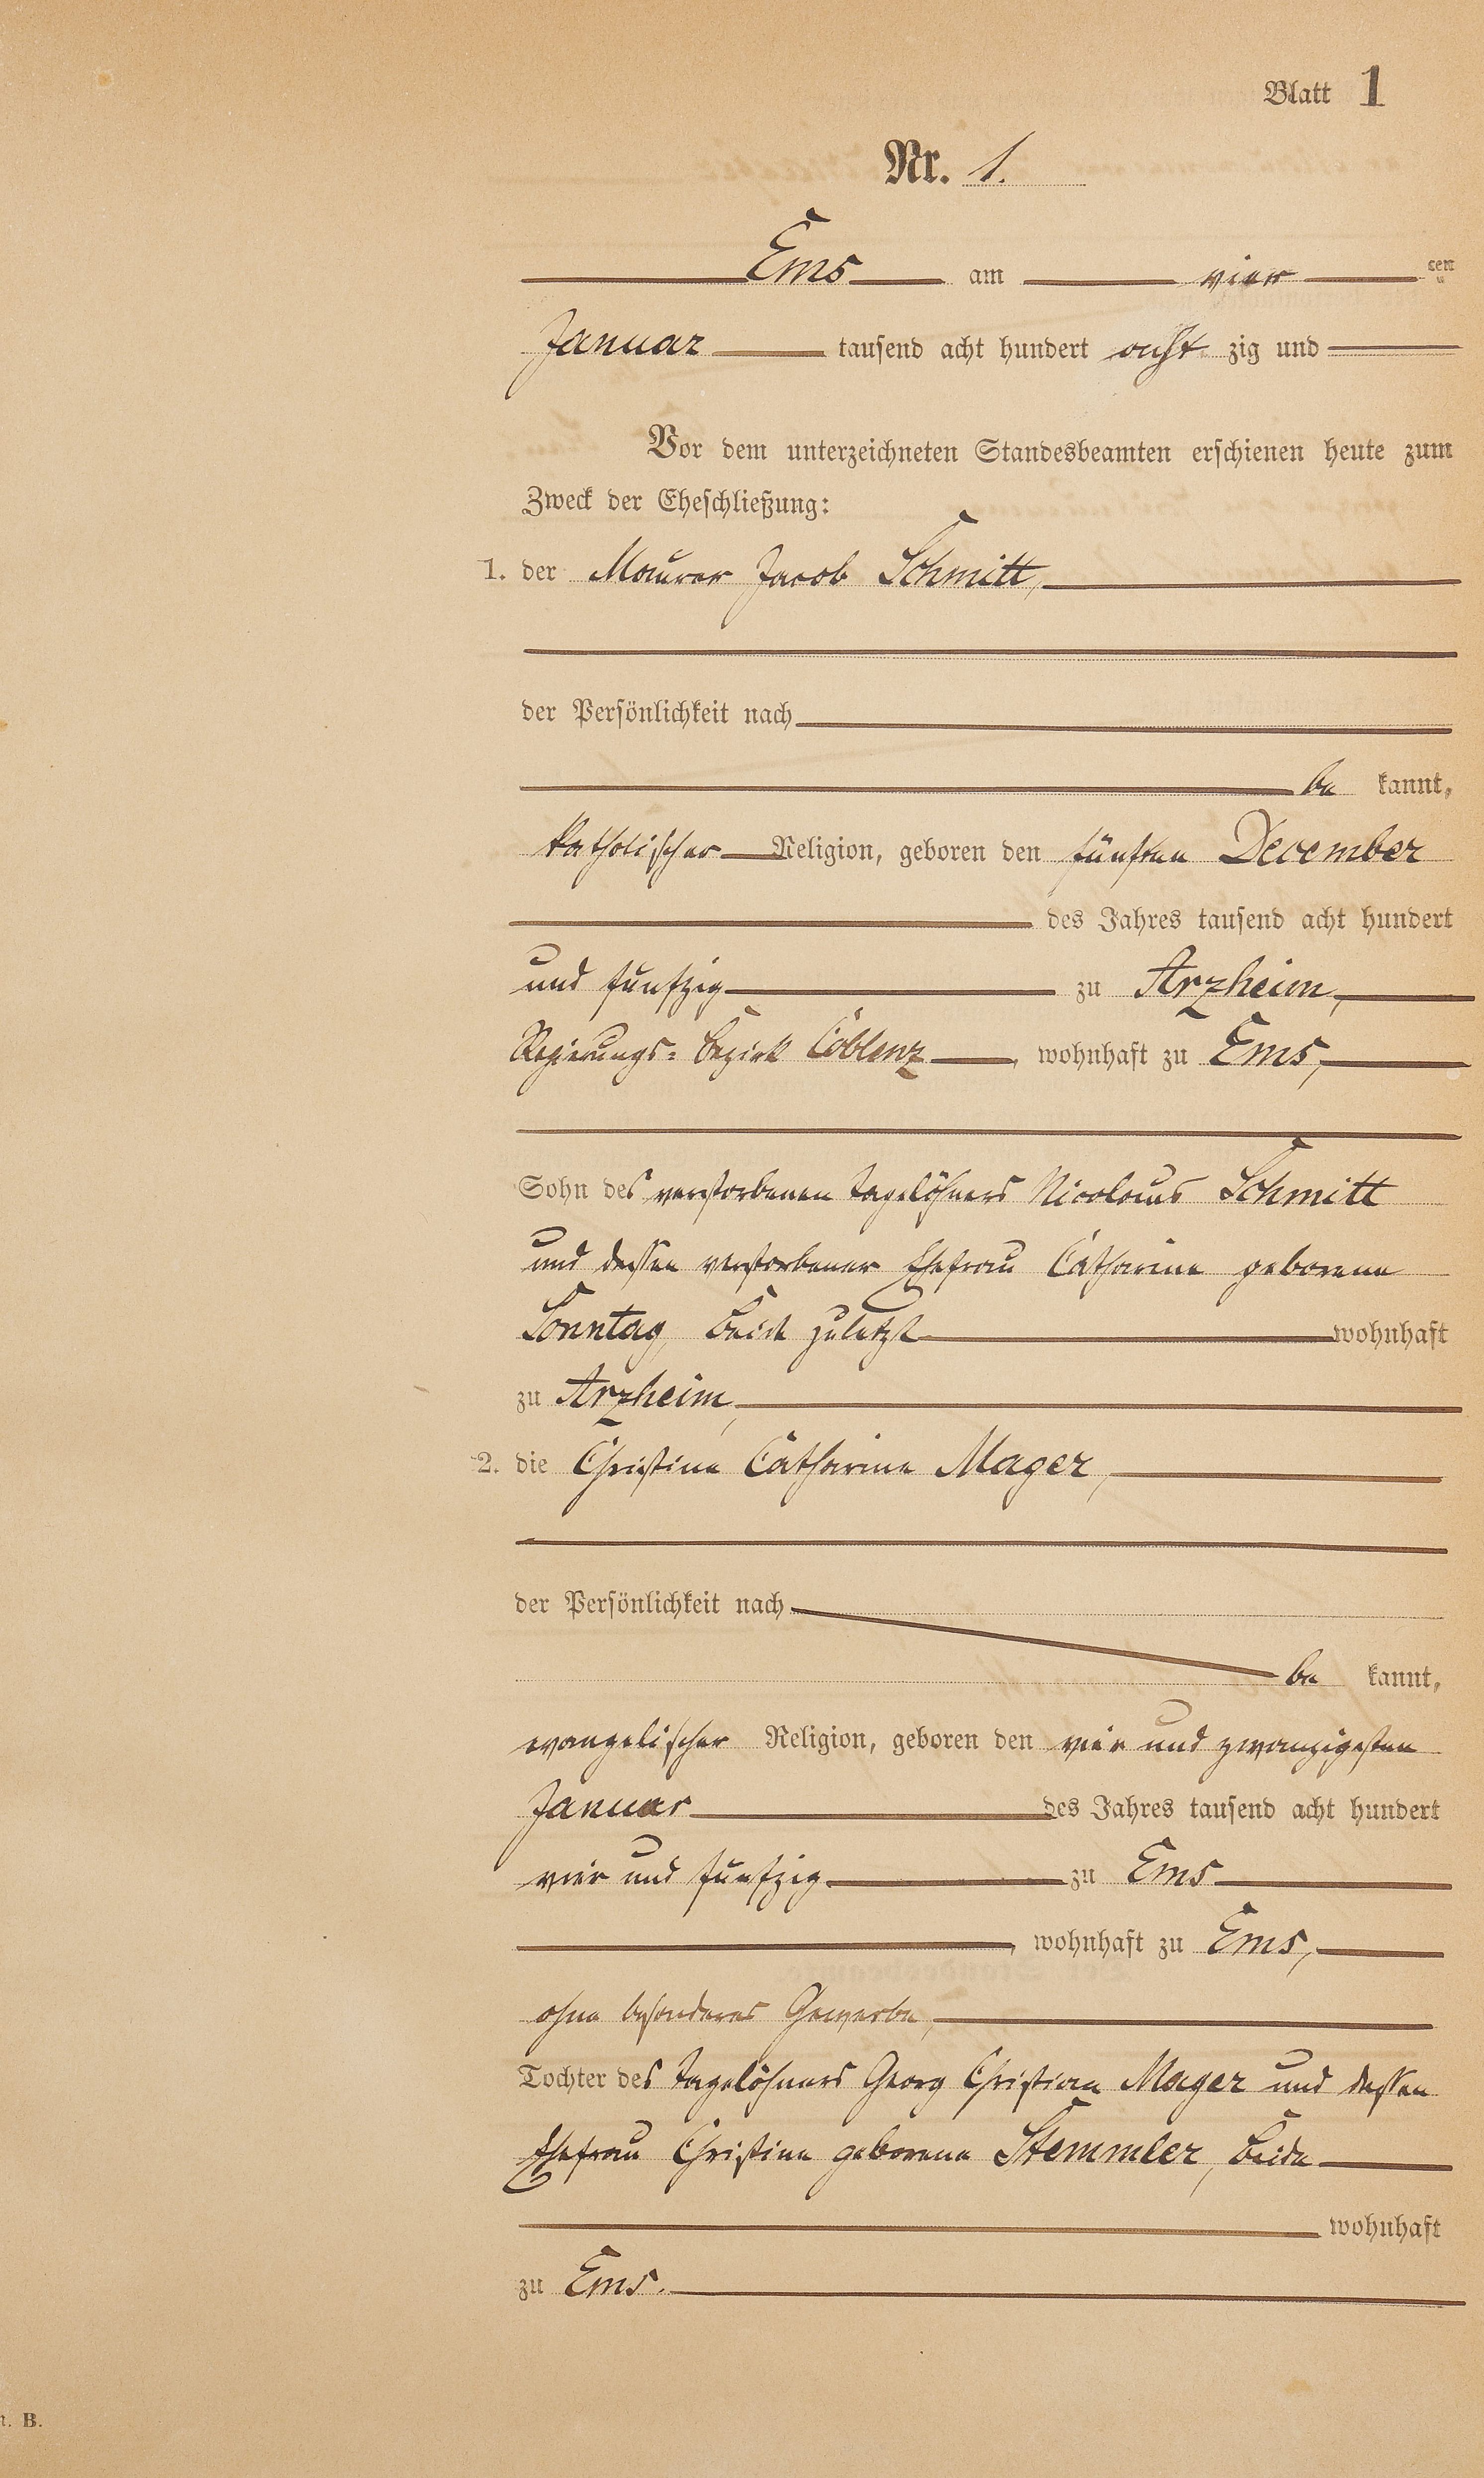 Blatt 1
Nr. 1.
Ems am vier ten
Januar tausend acht hundert acht zig und
Vor dem unterzeichneten Standesbeamten erschienen heute zum
Zweck der Eheschließung:
1. der Maurer Jacob Schmitt,
der Persönlichkeit nach
be kannt,
katholischer Religion, geboren den fünften December
des Jahres tausend acht hundert
und funfzig zu Arzheim,
Regierungs-Bezirk Coblenz, wohnhaft zu Ems,
Sohn des verstorbenen Tagelöhners Nicolaus Schmitt
und dessen verstorbener Ehefrau Catharine geborene
Sonntag, beide zuletzt wohnhaft
zu Arzheim,
2. die Christine Catharine Mager,
der Persönlichkeit nach
be kannt,
evangelischer Religion, geboren den vier und zwanzigsten
Januar des Jahres tausend acht hundert
vier und funfzig zu Ems
, wohnhaft zu Ems,
ohne besonderes Gewerbe,
Tochter des Tagelöhners Georg Christian Mager und dessen
Ehefrau Christine geborene Stemmler, beide
wohnhaft
zu Ems.
B.